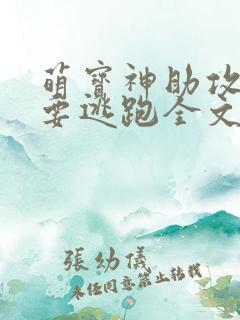 萌宝神助攻
要逃跑全文
張幼儀
未经同意禁止转载